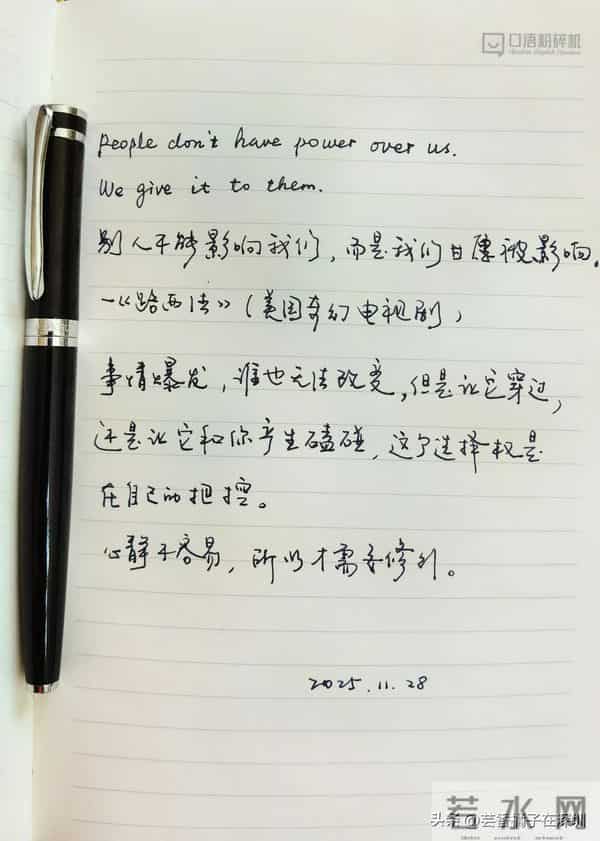 口语粉碎机
People don't have power over us.
We give it to them.
别人不能影响我们,而是我们甘愿被影响。
—《路西法》(美国奇幻电视剧)
事情爆发,谁也无法改变,但是让它穿过,
还是让它和你产生磕碰,这个选择权是
在自己的把控。
心静不容易,所以才需要修行。
2025.11.28
若水网
头条@芸智栗子在深圳